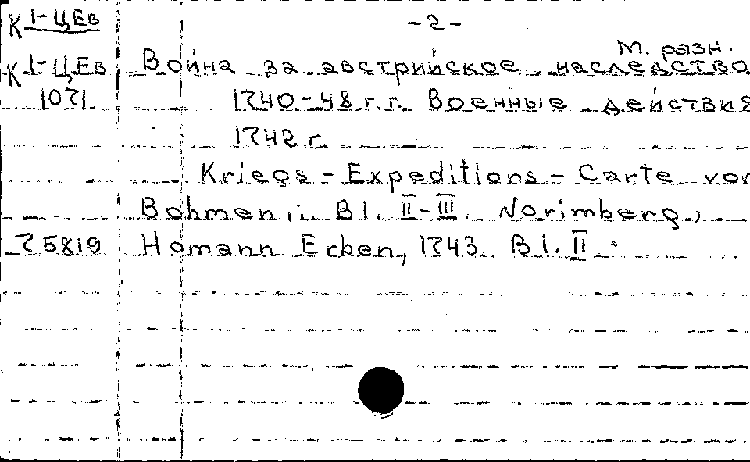 К 1-ЦЕв
-2-
м. разн.
К 1-ЦЕв Война за австрийское наследство
1071 1740-48 г.г. Военные действия
1742 г.
Kriegs-Expeditions-Carte von
Bohmen... Bl. II-III. Norimberg,
25819 Homann Erben, 1743. Bl. II